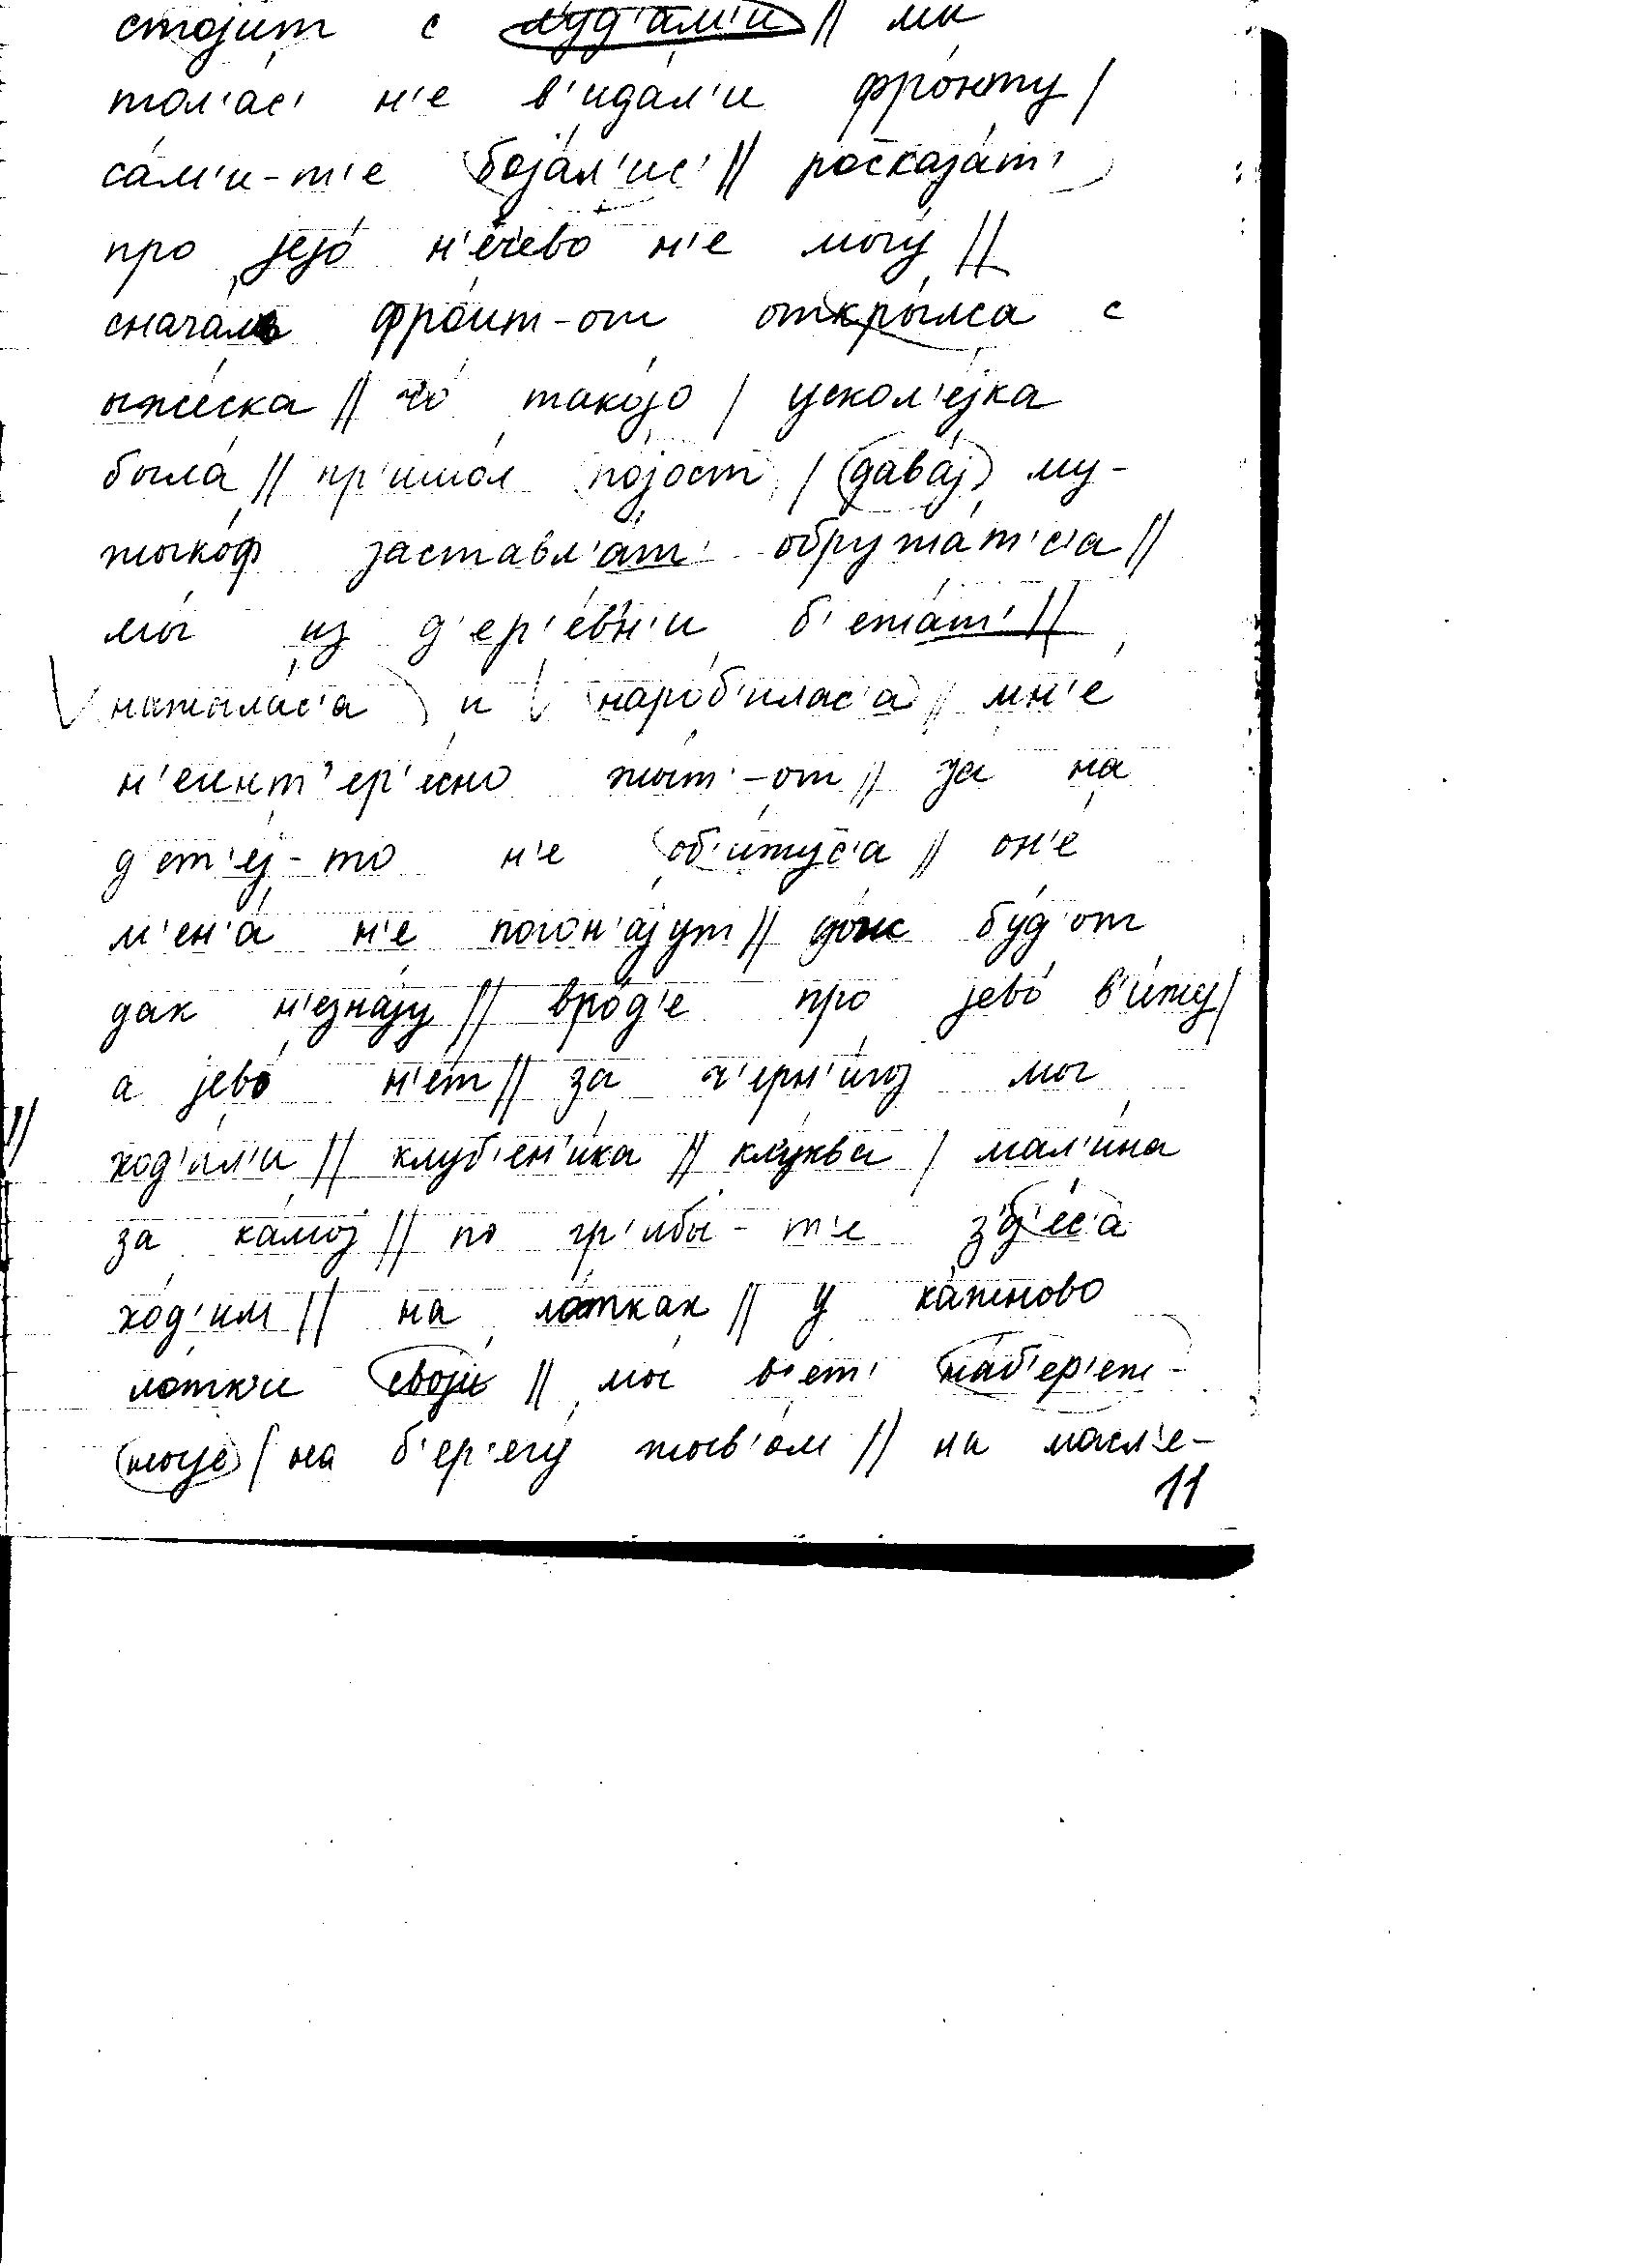 стоjит с л'уд'ам'и // мы
тол'ас' н'е в'идал'и фронту /
сам'и-т'е боjал'ис' // росказат'
про jejо н'ечево н'е могу //
сначала фронт-от открылса с
ыжеска // чо такоjо / ускол'еjка
была // пр'ишол поjост / даваj му-
жыкоф заставл'ат' обружат'с'а //
мы из д'ер'евн'и б'ежат' //
нажылас'а и нароб'илас'а // мн'е
н'еинт'ер'есно жыт'-от // jа на
д'ет'еj-то н'е об'ижус'а // он'е
м'ен'а н'е погон'аjут // дож буд'от
дак н'езнаjу // врод'е про jево в'ижу /
а jево н'ет // за ч'ерн'иkoj мы
ход'ил'и // клуб'ен'ика // клуква / мал'ина
за камоj // по гр'ибы-т'е з'д'ес'а
ход'им // на лотках // у кажново
лотк'и своjи // мы в'ет' наб'ер'еж-
ныjе / на б'ер'егу жыв'ом // на масл'е-
11